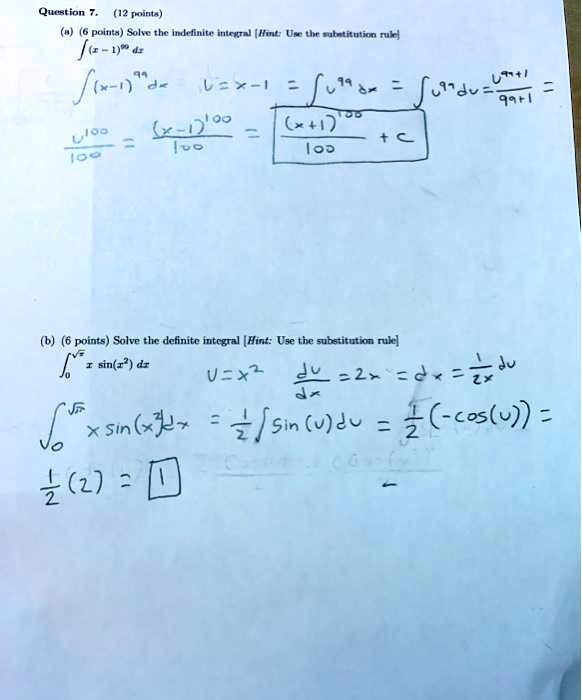 Question 7. (12 points)
(a) (6 points) Solve the indefinite integral [Hint: Use the substitution rule]
∫(x − 1)⁹⁹ dx
∫(x-1)⁹⁹dx U=x-1 = ∫u⁹⁹dx = ∫u⁹⁹du = U⁹⁹⁺¹/99+1 =
U¹⁰⁰/100 = (x-1)¹⁰⁰/100 = (x+1)¹⁰⁰/100 + c
(b) (6 points) Solve the definite integral [Hint: Use the substitution rule]
∫₀^√π x sin(x²) dx
U=x² du/dx = 2x = dx = 1/2x du
∫₀^√π x sin(x²)dx = 1/2 ∫sin(u)du = 1/2 (-cos(u)) =
1/2 (2) = 1